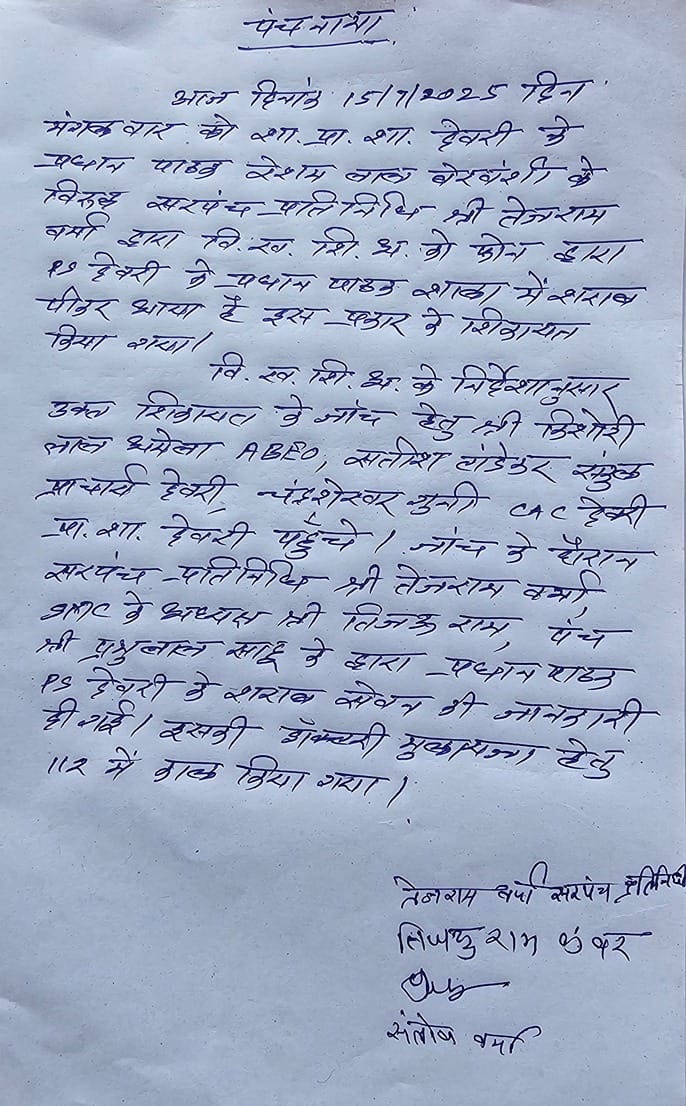 पंचनामा
आज दिनांक 15/7/2025 दिन
मंगलवार को शा. प्रा. शा. देवरी के
प्रधान पाठक रेशम लाल बेरवंशी के
विरुद्ध सरपंच प्रतिनिधि श्री तेजराम
वर्मा द्वारा वि. ख. शि. अ. को फोन द्वारा
PS देवरी के प्रधान पाठक शाला में शराब
पीकर आया है इस प्रकार के शिकायत
किया गया।
वि. ख. शि. अ. के निर्देशानुसार
उक्त शिकायत के जांच हेतु श्री किशोरी
लाल ABEO, सतीश टांडेकर संकुल
प्राचार्य देवरी, चंद्रशेखर CAC देवरी
प्रा. शा. देवरी पहुँचे। जांच के दौरान
सरपंच प्रतिनिधि श्री तेजराम वर्मा,
SMC के अध्यक्ष श्री तिजऊ राम, पंच
श्री प्रभुलाल साहू के द्वारा प्रधान पाठक
PS देवरी के शराब सेवन की जानकारी
दी गई। इसकी डॉक्टरी मुलायजा हेतु
112 में काल किया गया।
तेजराम वर्मा सरपंच प्रतिनिधी
राम कंवर
संतोष वर्मा